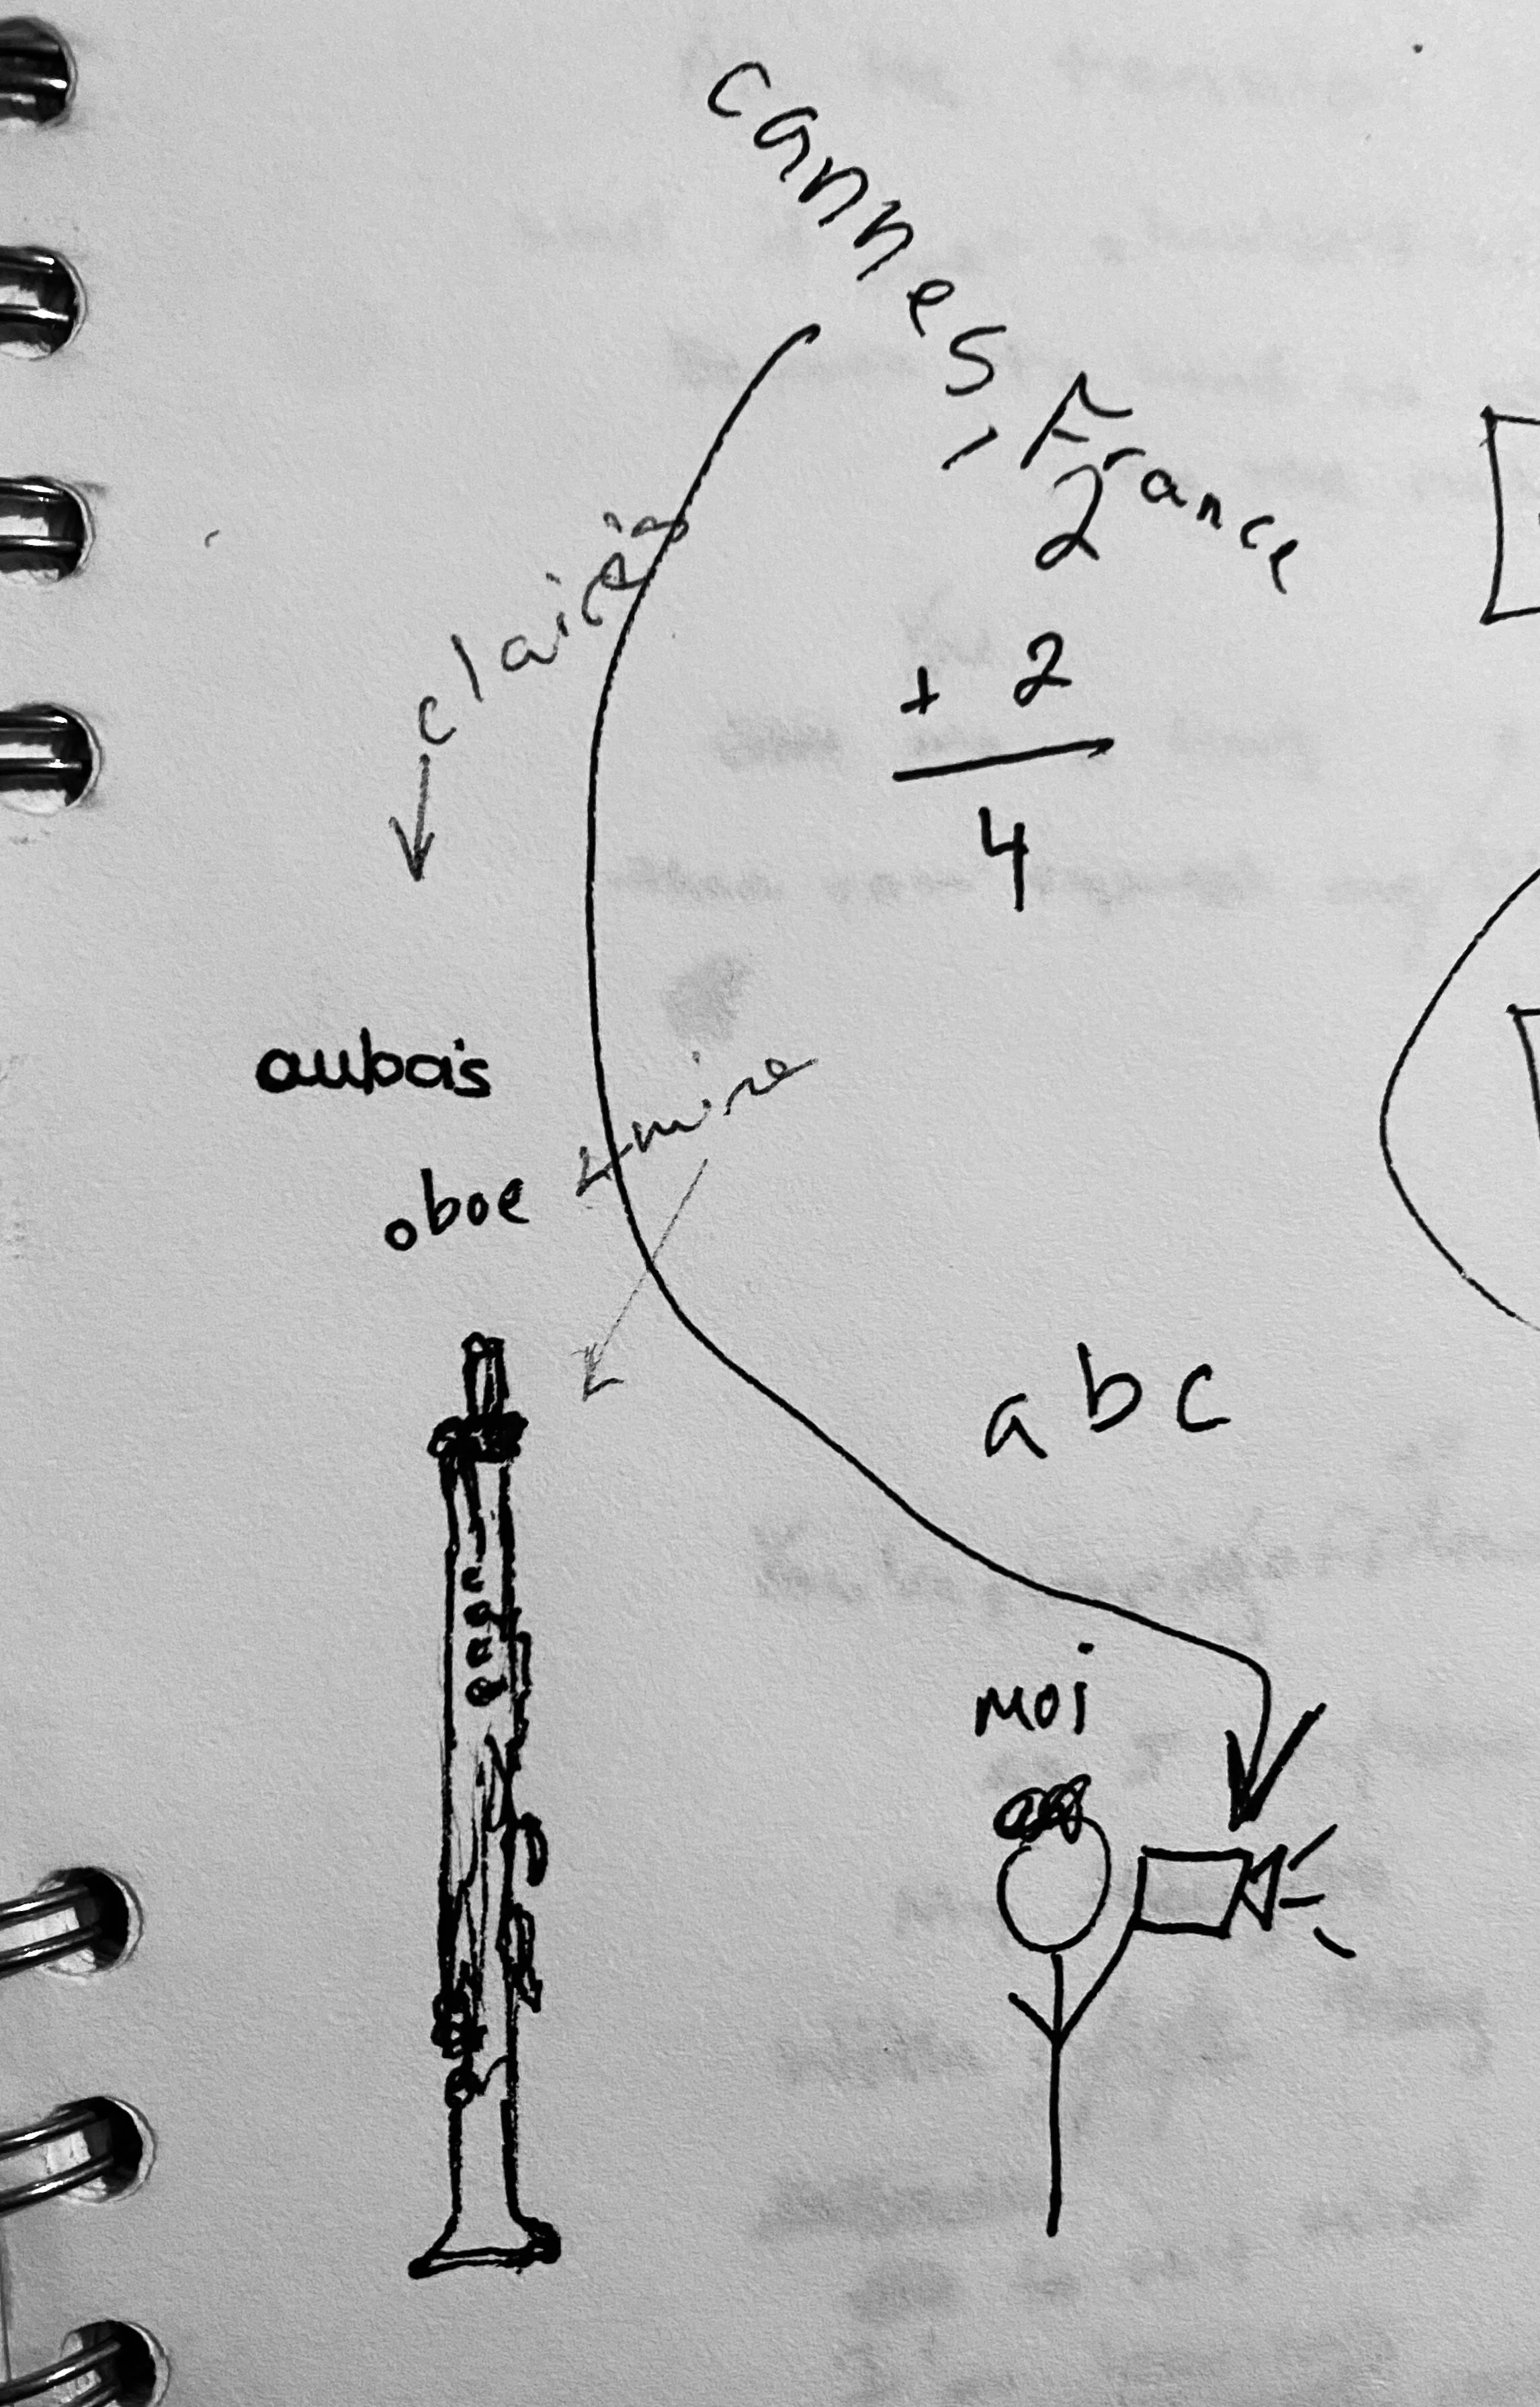 cannes, France
2
+ 2
4
aubois
mine
oboe
abc
moi